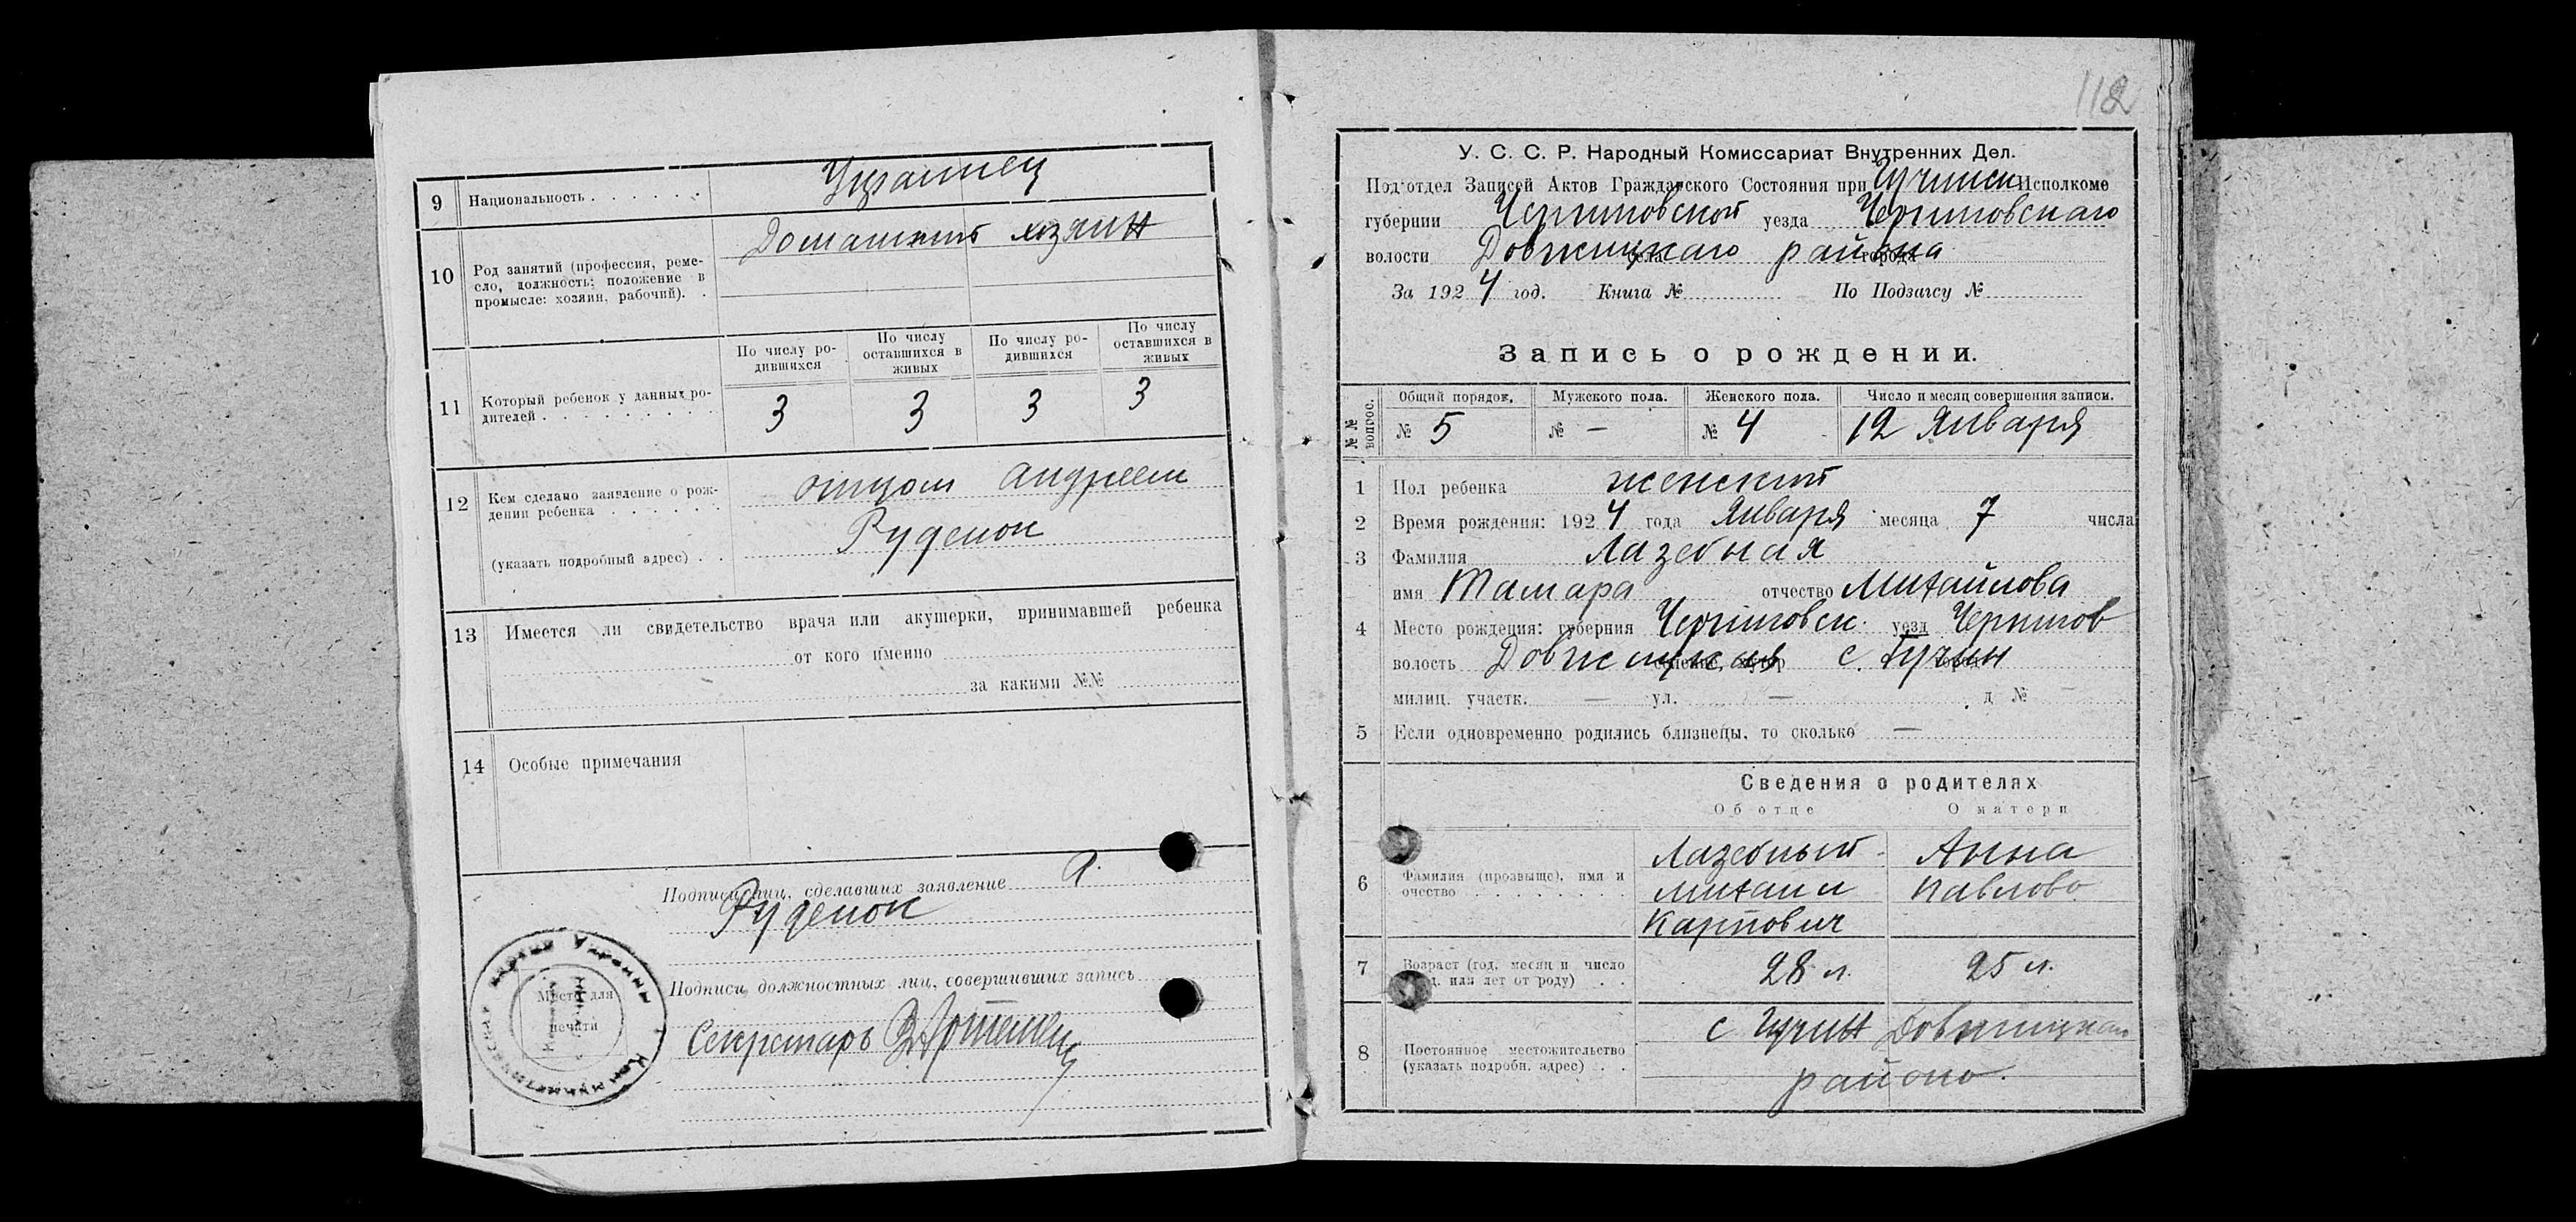 9 Национальность . . . . . . Украинец
10 Род занятий (профессия, реме-
сло, должность; положение в
промысле: хозяин, рабочий). .
Домашний хозяин
По числу ро-
дившихся
По числу
оставшихся в
живых
По числу ро-
дившихся
По числу
оставшихся в
живых
11 Который ребенок у данных ро-
дителей . . . . . . . . .
3 3 3 3
12 Кем сделано заявление о рож-
дении ребенка . . . . . .
(указать подробный адрес) . .
отцом Андреем
Руденок
13 Имеется ли свидетельство врача или акушерки, принимавшей ребенка
от кого именно
за какими №№
14 Особые примечания
Подписи лиц, сделавших заявление А.
Руденок
Подписи должностных лиц, совершивших запись
Секретарь
Место для
печати
112
У. С. С. Р. Народный Комиссариат Внутренних Дел.
Подотдел Записей Актов Гражданского Состояния при Гучинск Исполкоме
губернии Черниговской уезда Черниговскаго
волости Довжицкаго села района города
За 1924 год. Книга № По Подзагсу №
Запись о рождении.
№ № вопрос.
Общий порядок. Мужского пола. Женского пола. Число и месяц совершения записи.
№ 5 № — № 4 12 Января
1 Пол ребенка женский
2 Время рождения: 1924 года Января месяца 7 числа
3 Фамилия Лазебная
имя Тамара отчество Михайлова
4 Место рождения: губерния Чернiговск. уезд Чернигов
волость Довжицкая с. Гучин
милиц. участк. — ул. — д № —
5 Если одновременно родились близнецы, то сколько —
Сведения о родителях
Об отце О матери
6 Фамилия (прозвыще), имя и
очество . . . . . . .
Лазебный
Михаил
Карпович
Анна
Павлово
7 Возраст (год, месяц и число
д. или лет от роду) . .
28 л. 25 л.
8 Постоянное местожительство
(указать подробн. адрес) . .
с Гучин Довжицкаго
района.